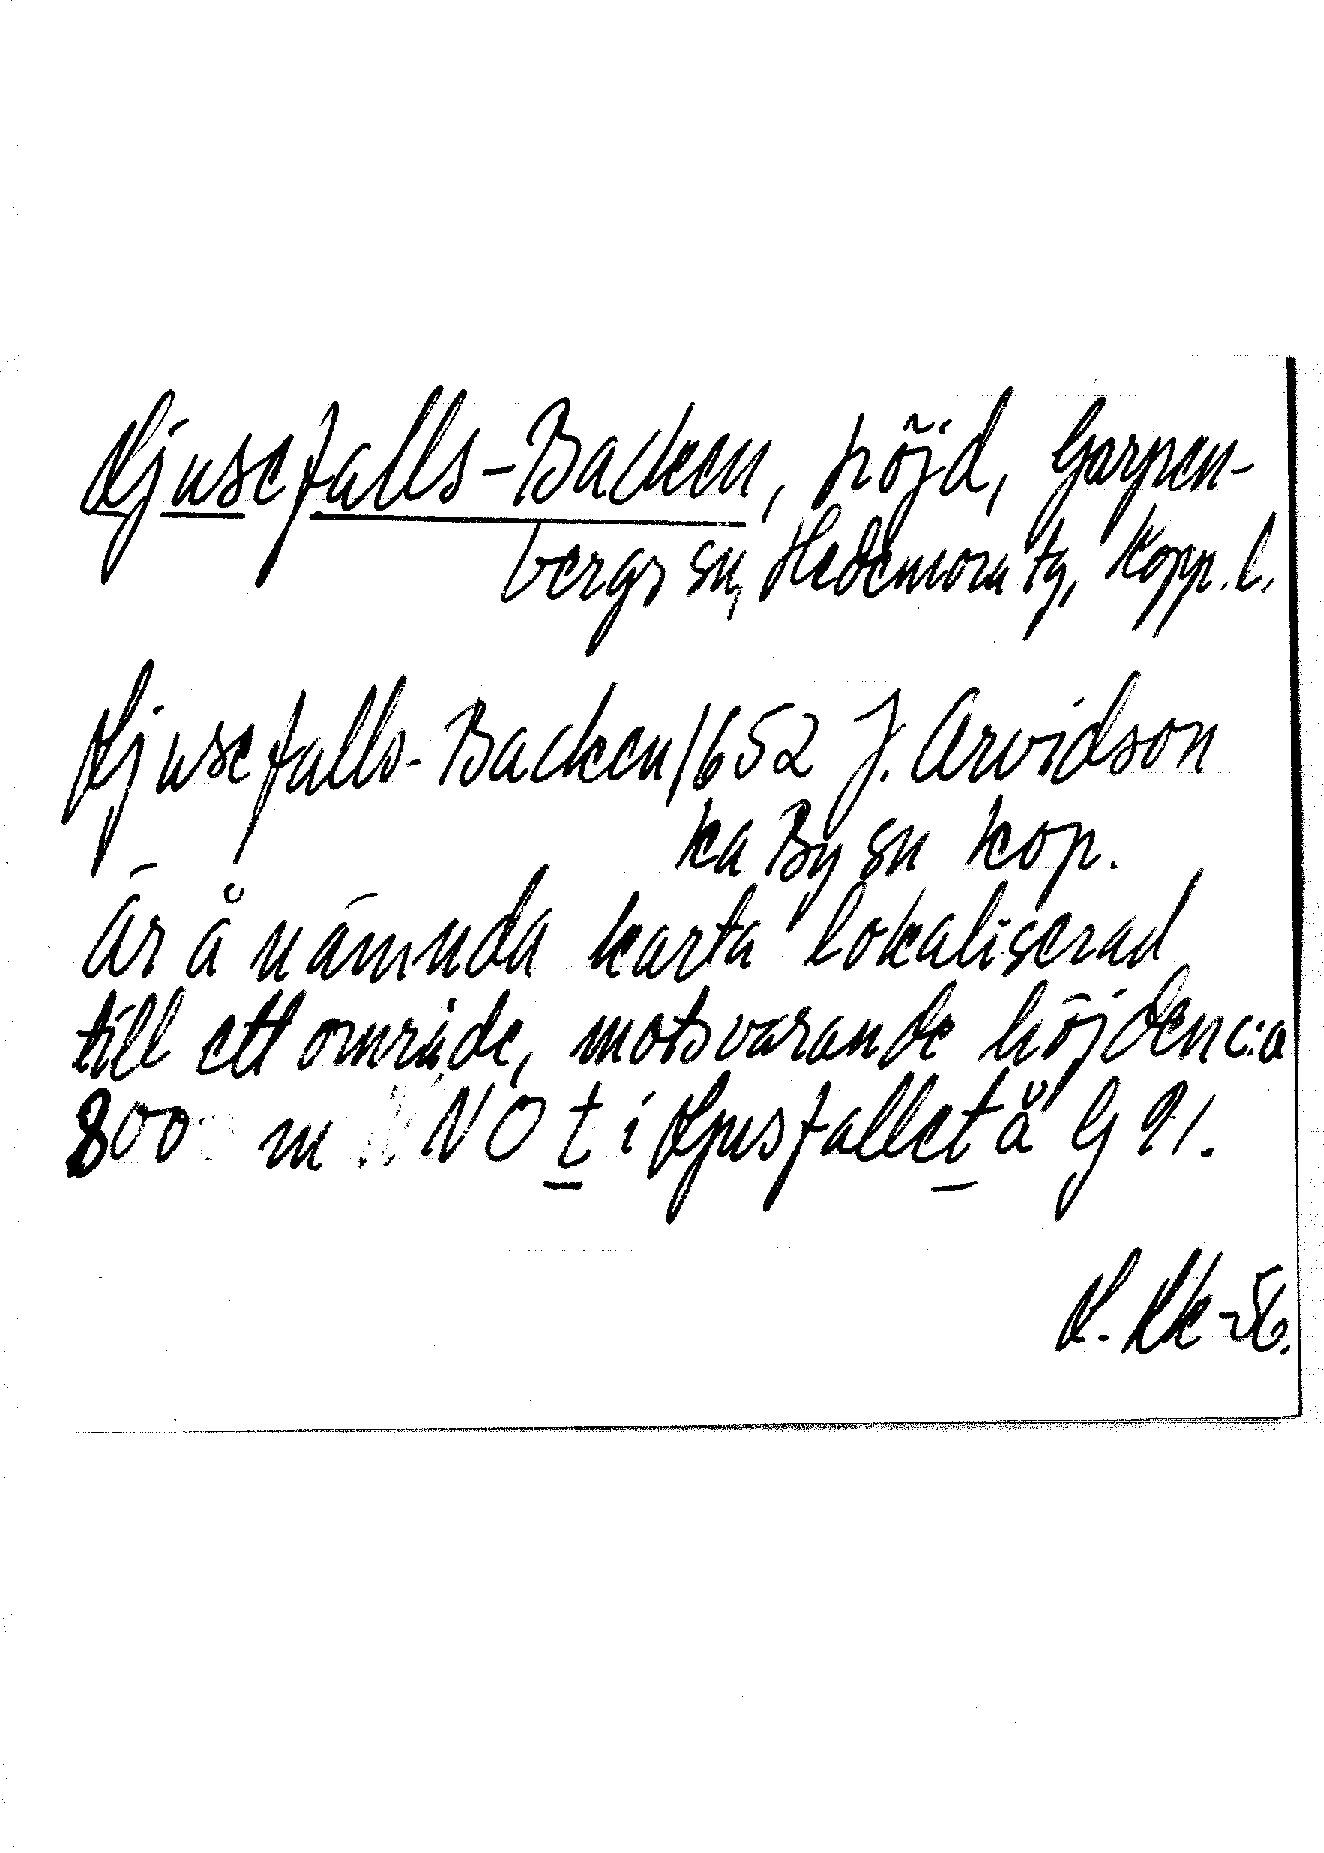 Ljusefalls-Backen, höjd, Garpen-
bergs sn, Hedemora tg, Kopp. l.
Ljusefalls-Backen 1652 J. Arvidson
ka By sn kop.
Är å nämnda karta lokaliserad
till ett område, motsvarande höjden c:a
800 m NO t i Ljusfallet å G 91.
L. Lk-56.